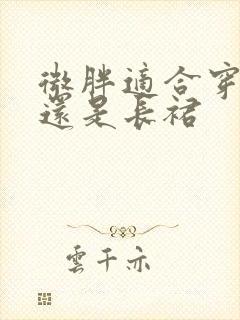 微胖適合穿
還是長裙
雲千亦